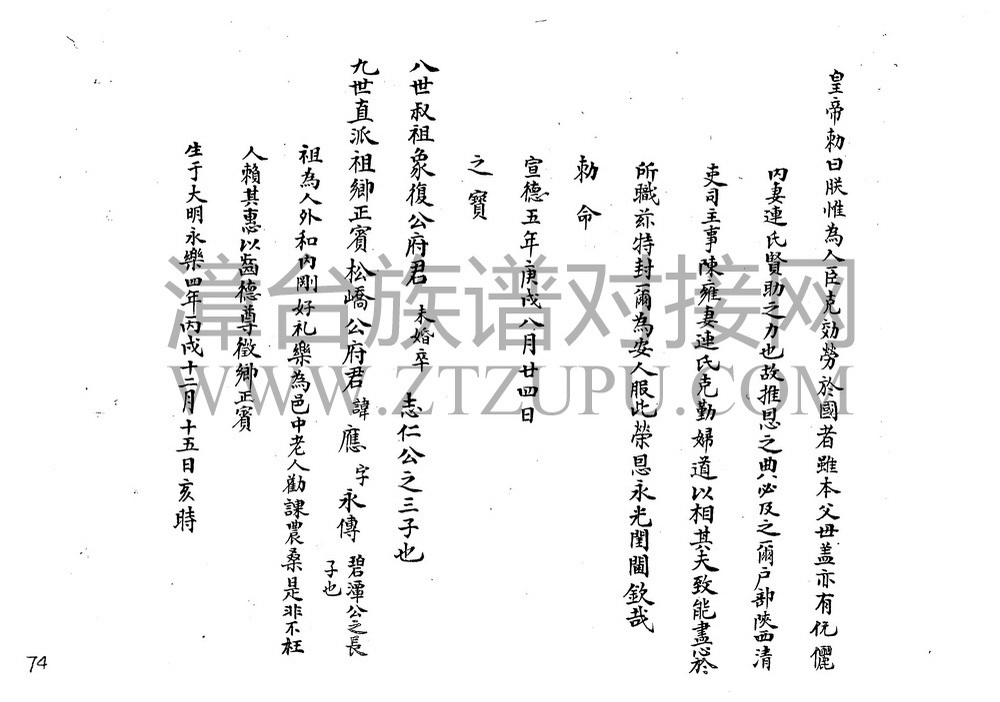 皇帝勅曰朕惟為人臣克効勞於國者雖本父毋盖亦有伉儷
内妻連氏賢助之力也故推恩之典必及之爾户部陝西清
吏司主事陳雍妻連氏克勤婦道以相其夫致能盡心於
所職茲特封爾為安人服此榮恩永光閨閫欽哉
勅命
宣德五年庚戌八月廿四日
之寶
八世叔祖象復公府君 未婚卒 志仁公之三子也
九世直派祖鄉正賓松嶠公府君 諱應 字永傳 碧潭公之長子也
祖為人外和内剛好礼樂為邑中老人勸課農桑是非不枉
人賴其惠以齒德尊徵鄉正賓
生于大明永樂四年丙戌十二月十五日亥時
74
漳台族谱对接网
WWW.ZTZUPU.COM